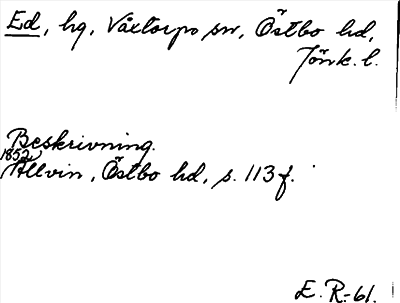 Ed, hg, Våxtorps sn, Östbo hd,
Jönk. l.
Beskrivning.
1852
Allvin, Östbo hd, s. 113 f.
E. R-61.